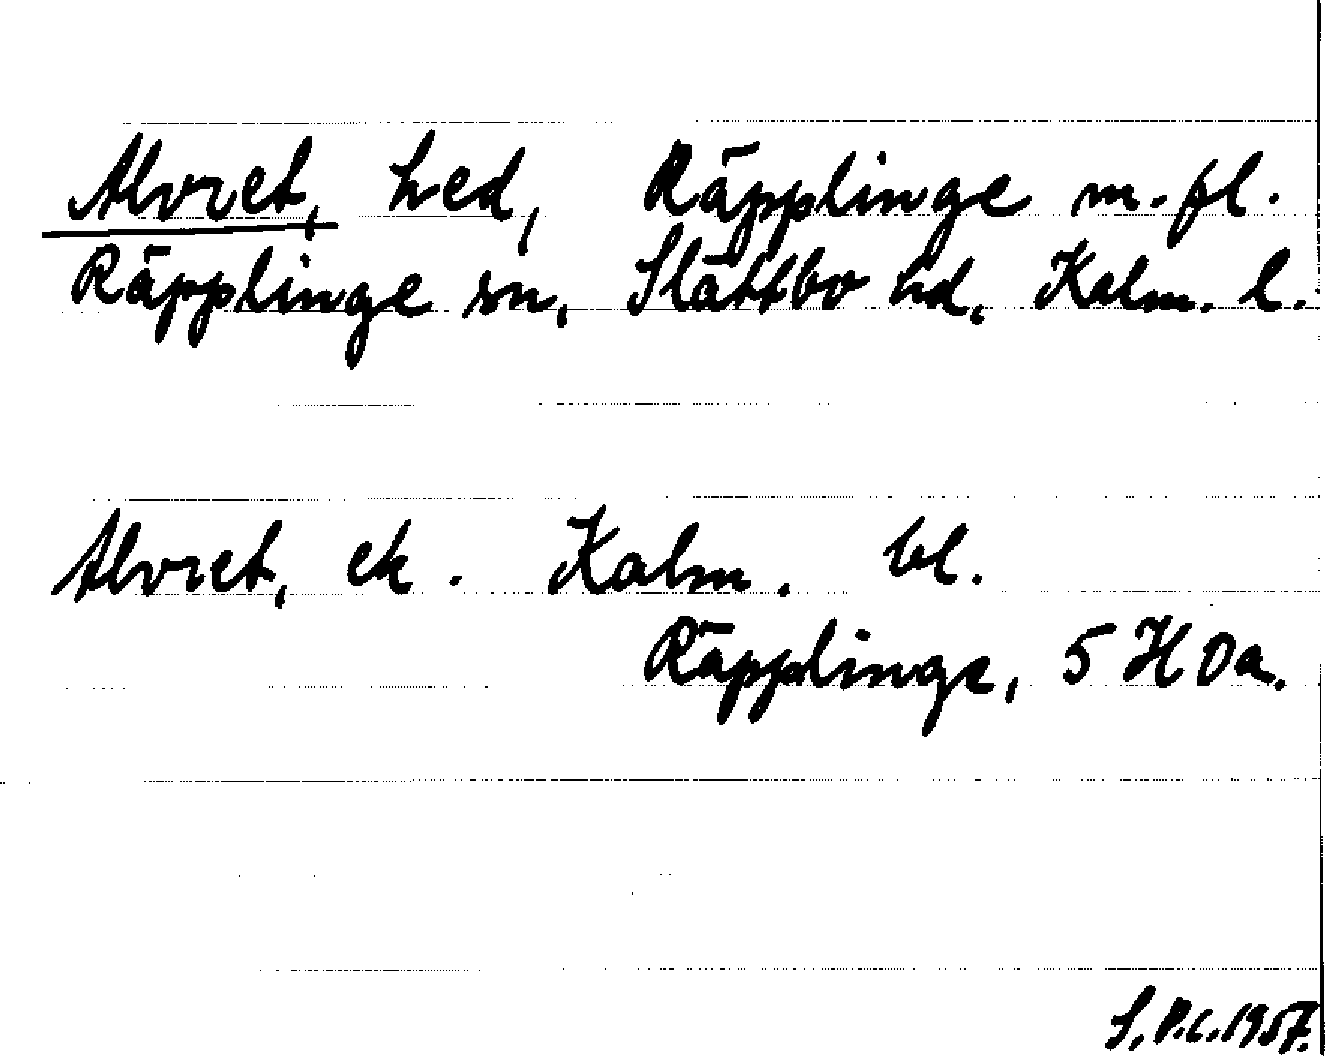 Alvret, hed, Räpplinge m. fl.
Räpplinge sn, Slättbo hd, Kalm. l.
Alvret, ek. Kalm. bl.
Räpplinge, 5 H Da.
S.P.C. 1957.